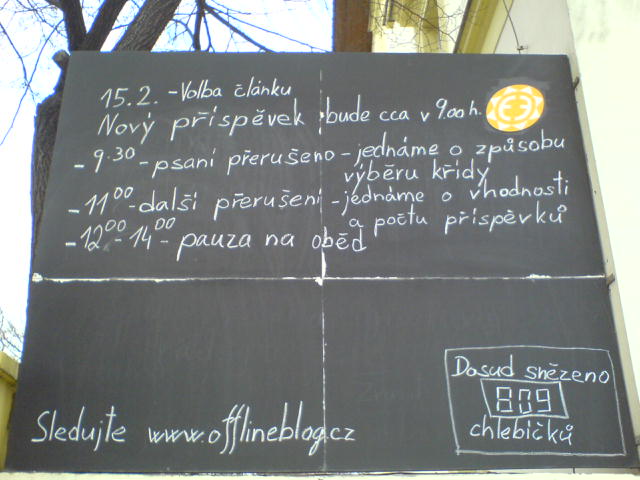 15.2. - Volba článku
Nový příspěvek bude cca v 9.00 h.
- 9.30 - psaní přerušeno - jednáme o způsobu
výběru křídy
- 11⁰⁰ - další přerušení - jednáme o vhodnosti
a počtu příspěvků
- 12⁰⁰ - 14⁰⁰ - pauza na oběd
Dosud snězeno
809
chlebíčků
Sledujte www.offlineblog.cz